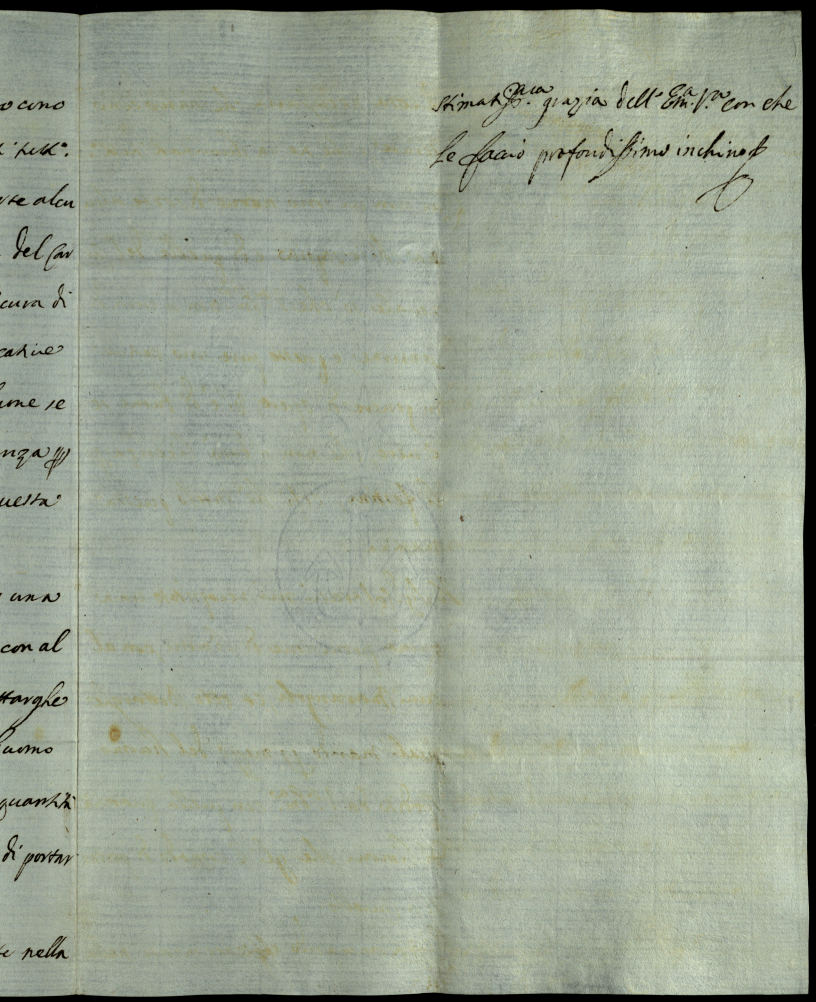 o cino
te alcu
del Car
cura di
cative
ione se
nza
uesta
una
con al
ttarghe
uomo
quantità
di portar
nella
Stimatis.ma grazia dell' Em.za V.ra con che
le faccio profondissimo inchino